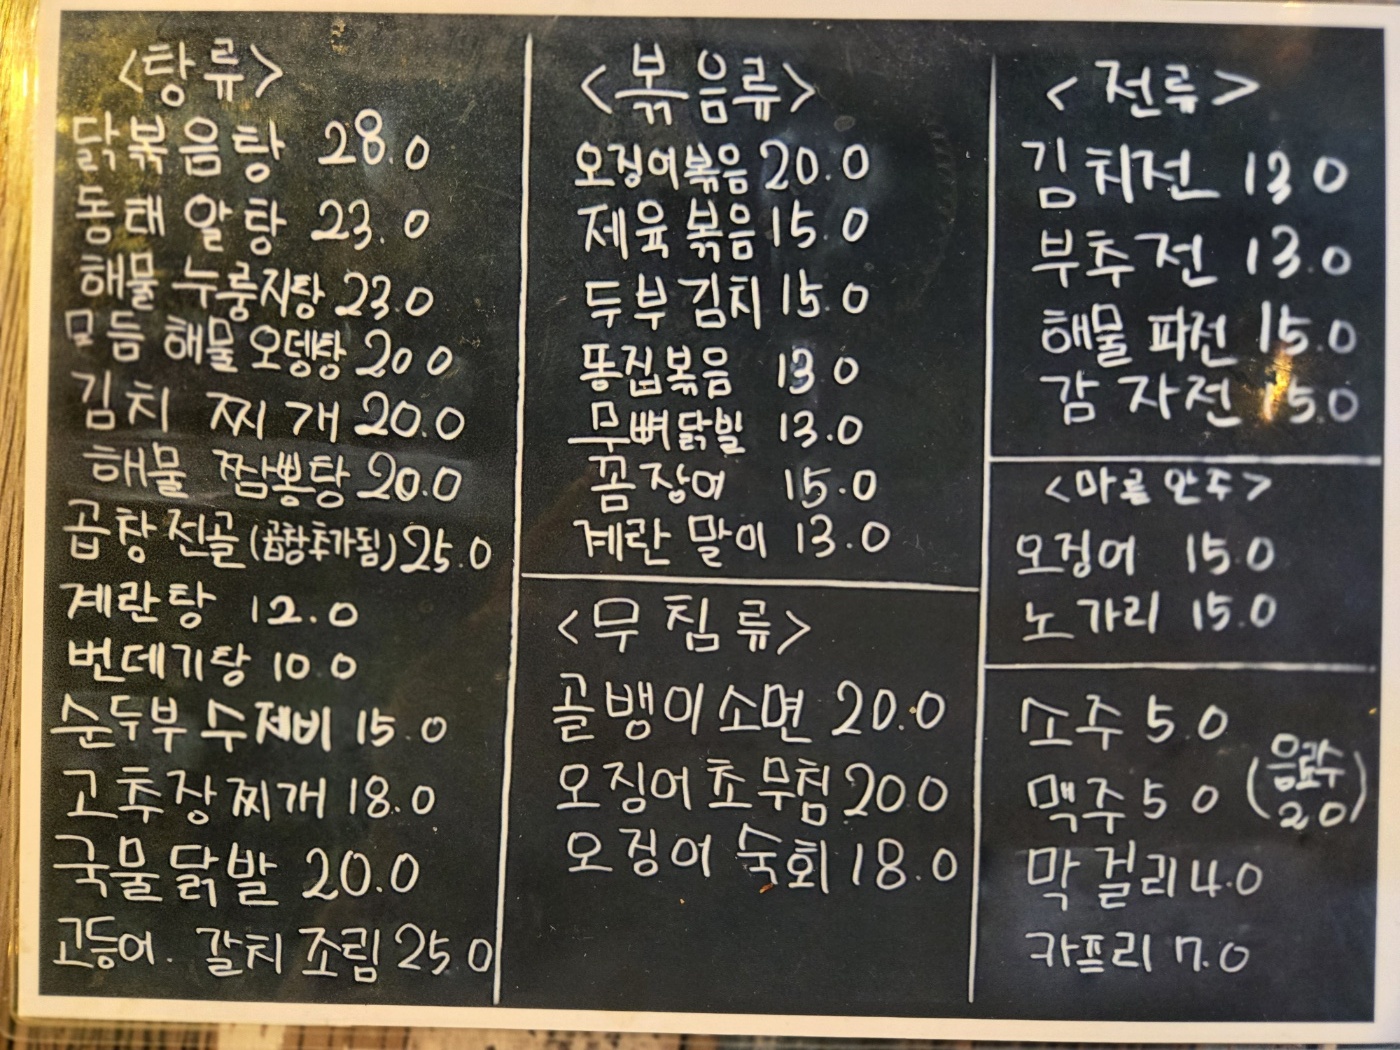 <탕류>
닭볶음탕 28.0
동태 알탕 23.0
해물 누룽지탕 23.0
모듬 해물 오뎅탕 20 0
김치 찌개 20.0
해물 짬뽕탕 20.0
곱창전골 (곱창추가됨) 25.0
계란탕 12.0
번데기탕 10.0
순두부 수제비 15.0
고추장찌개 18.0
국물닭발 20.0
고등어. 갈치 조림 25 0
<볶음류>
오징어볶음 20.0
제육볶음 15.0
두부김치 15.0
똥집볶음 13 0
무뼈닭발 13.0
꼼장어 15.0
계란 말이 13.0
<무침류>
골뱅이소면 20.0
오징어초무침 20 0
오징어 숙회 18.0
<전류>
김치전 13 0
부추전 13.0
해물 파전 15.0
감자전 15.0
<마른안주>
오징어 15.0
노가리 15.0
소주 5.0
맥주 5 0
(음료수
2 0)
막걸리 4.0
카프리 7.0